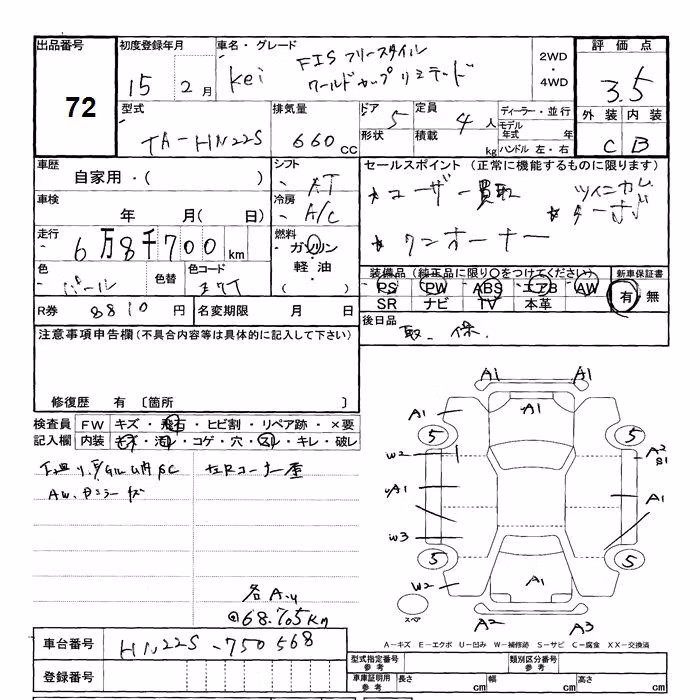 出品番号
72
初度登録年月
15 2 月
車名・グレード
Kei FISフリースタイル
ワールドカップリミテッド
2WD
・
4WD
評価点
3.5
外装 内装
C B
型式
TA-HN22S
排気量
660 cc
ドア 5
形状
定員 4 人
積載 kg
ディーラー・並行
モデル年式 年
ハンドル 左・右
車歴
自家用・( )
シフト
AT
車検
年 月( 日)
冷房
A/C
走行
6万8千700 km
燃料
ガソリン
・
軽油・
( )
色
パール
色替
色コード
Z7T
R券 8810 円
名変期限 月 日
セールスポイント (正常に機能するものに限ります)
★ユーザー買取 ツインカム
★ターボ
★ワンオーナー
装備品 (純正品に限り○をつけてください)
PS PW ABS エアB AW
SR ナビ TV 本革
新車保証書
有 無
後日品
取.保.
注意事項申告欄(不具合内容等は具体的に記入して下さい)
修復歴 有 〔箇所
検査員
記入欄
FW キズ・飛石・ヒビ割・リペア跡・×要
内装 キズ・汚れ・コゲ・穴・スレ・キレ・破レ
AW.
各A.u
@68.705km
A1 A1
A1 A1
5 5
W2 A2
B1
A1 A1
W3
5 5
W2 A1
スペア
A2 A3
A-キズ E-エクボ U-凹み W-補修跡 S-サビ C-腐食 XX-交換済
車台番号 HN22S-750568
登録番号
型式指定番号
参考
類別区分番号
参考
車庫証明用
参考
長さ cm 幅 cm 高さ cm